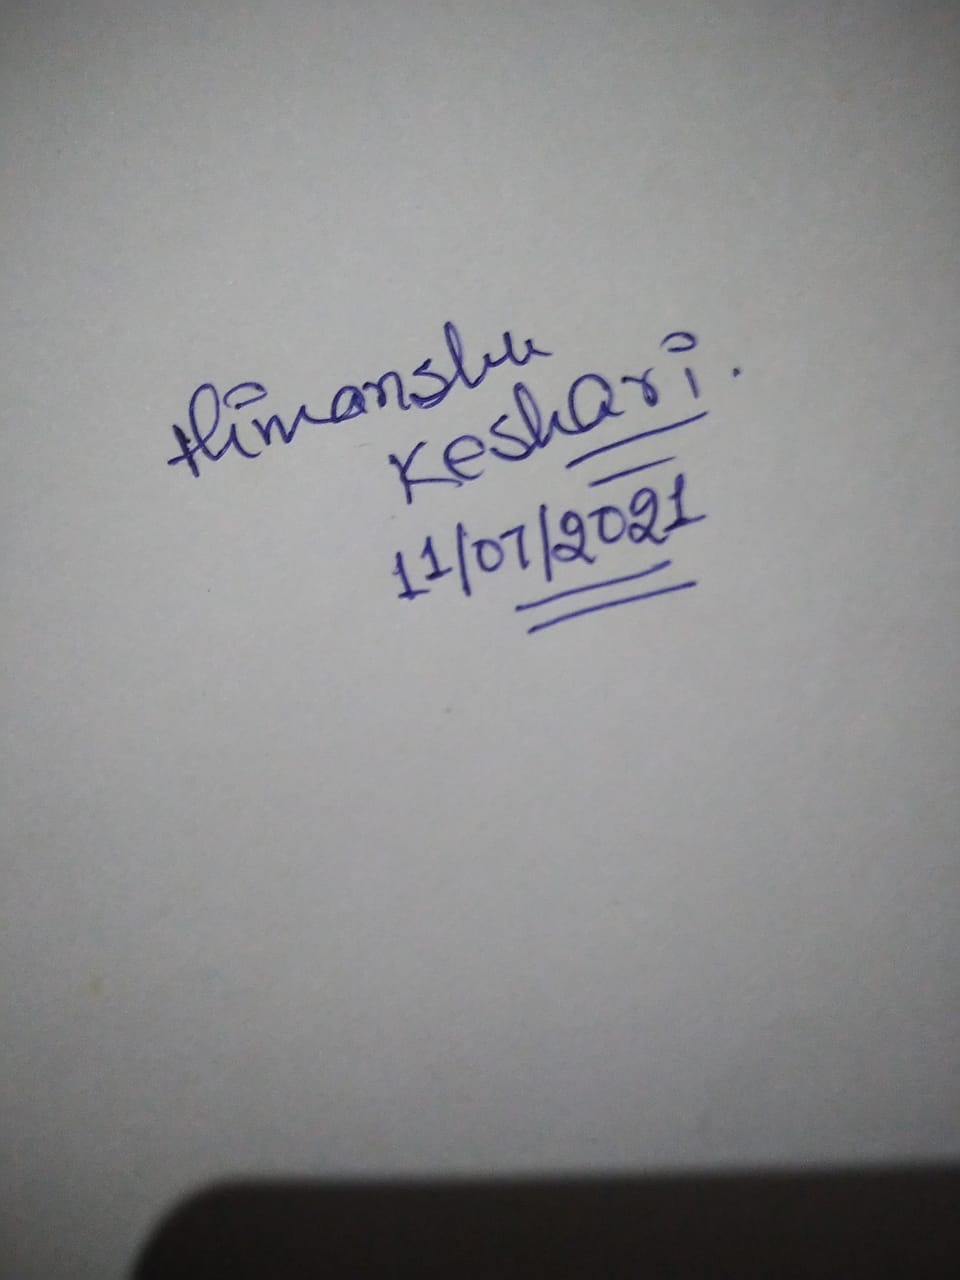 Himanshu
Keshari.
11/07/2021